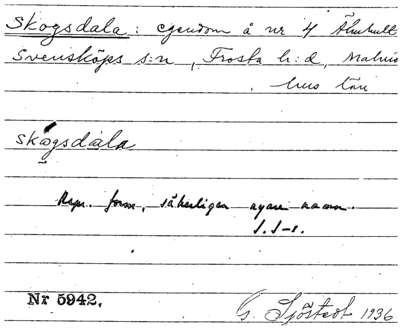 Skogsdala: egendom å nr 4 Åkhult
Svensköps s:n, Frosta h:d, Malmö
hus län
skogsdala
Rspr. form, säkerligen ngn namn.
S. S-s.
Nr 5942.
G. Sjöstedt 1936